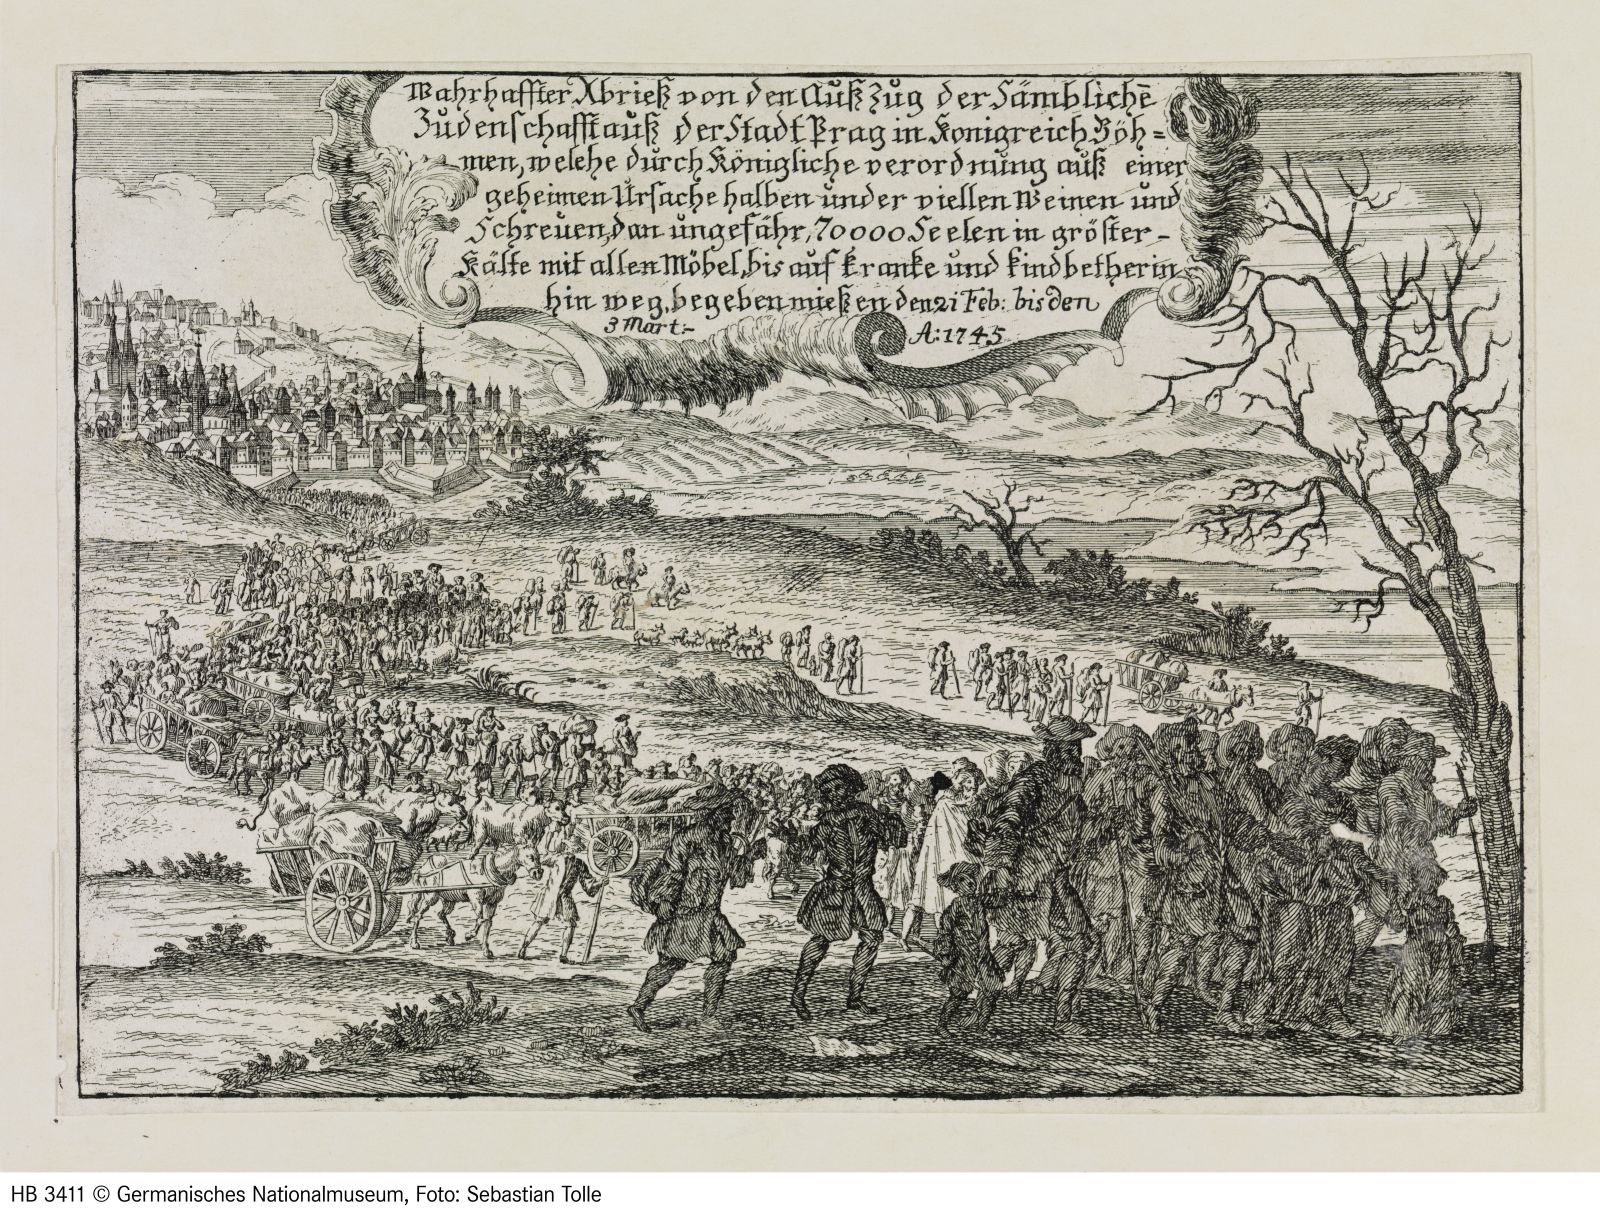 Wahrhaffter Abrieß von den Auß Zug der Sämbliche̅
Judenschafft auß der Stadt Prag in Konigreich Böh=
men, welche durch Königliche verordnung auß einer
geheimen Ursache halben under viellen Weinen und
Schreuen, dan ungefähr, 70000 Seelen in gröster-
Kälte mit allen Möbel, bis auf kranke und kindbetherin
hin weg, begeben mießen den 21 Feb: bis den
3 Mart:- A: 1745
HB 3411 © Germanisches Nationalmuseum, Foto: Sebastian Tolle